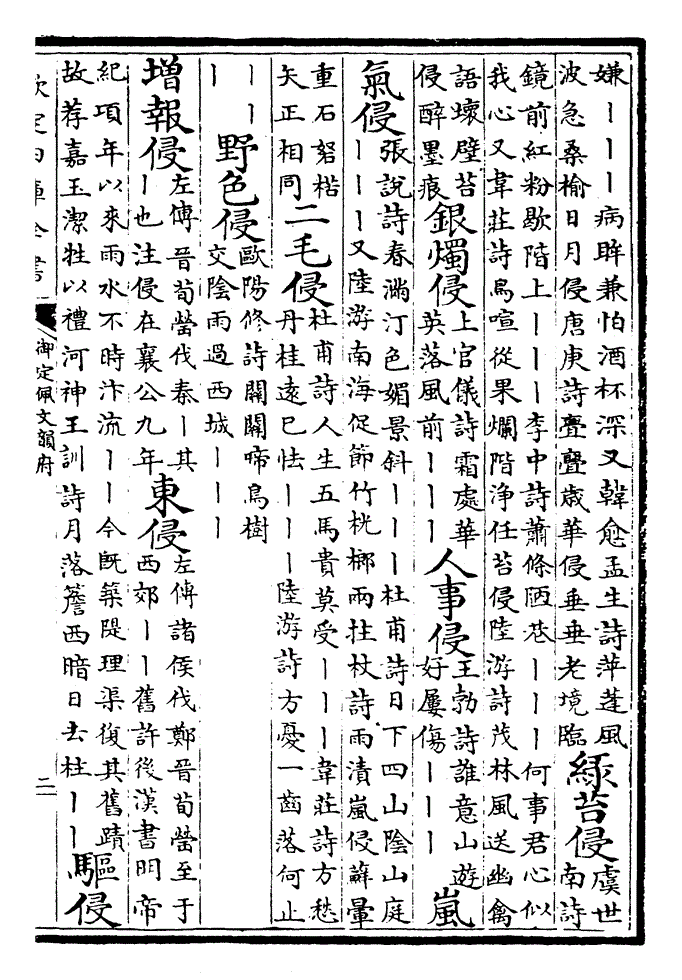 嫌丨丨丨病眸兼怕酒杯深又韓愈孟生詩萍蓬風
波急桑榆日月侵唐庚詩亹亹歲華侵垂垂老境臨
綠苔侵
虞世
南詩
鏡前紅粉歇階上丨丨丨李中詩蕭條陋巷丨丨丨何事君心似
我心又韋莊詩鳥喧從果爛階淨任苔侵陸游詩茂林風送幽禽
語壞壁苔
侵醉墨痕
銀燭侵
上官儀詩霜處華
英落風前丨丨丨
人事侵
王勃詩誰意山遊
好屢傷丨丨丨
嵐
氣侵
張說詩春滿汀色媚景斜丨丨丨杜甫詩日下四山陰山庭
丨丨丨又陸游南海促節竹桄榔雨拄杖詩雨漬嵐侵蘚暈
重石弩楷
矢正相同
二毛侵
杜甫詩人生五馬貴莫受丨丨丨韋莊詩方愁
丹桂遠已怯丨丨丨陸游詩方憂一齒落何止
丨丨
丨
野色侵
歐陽修詩關關啼鳥樹
交陰雨過西城丨丨丨
增報侵
左傳晉荀罃伐秦丨其
丨也注侵在襄公九年
東侵
左傳諸侯伐鄭晉荀罃至于
西郊丨丨舊許後漢書明帝
紀項年以來雨水不時汴流丨丨今既築隄理渠復其舊蹟
故荐嘉玉潔牲以禮河神王訓詩月落簷西暗日去柱丨丨
驅侵
欽定四庫全書
御定佩文韻府
二